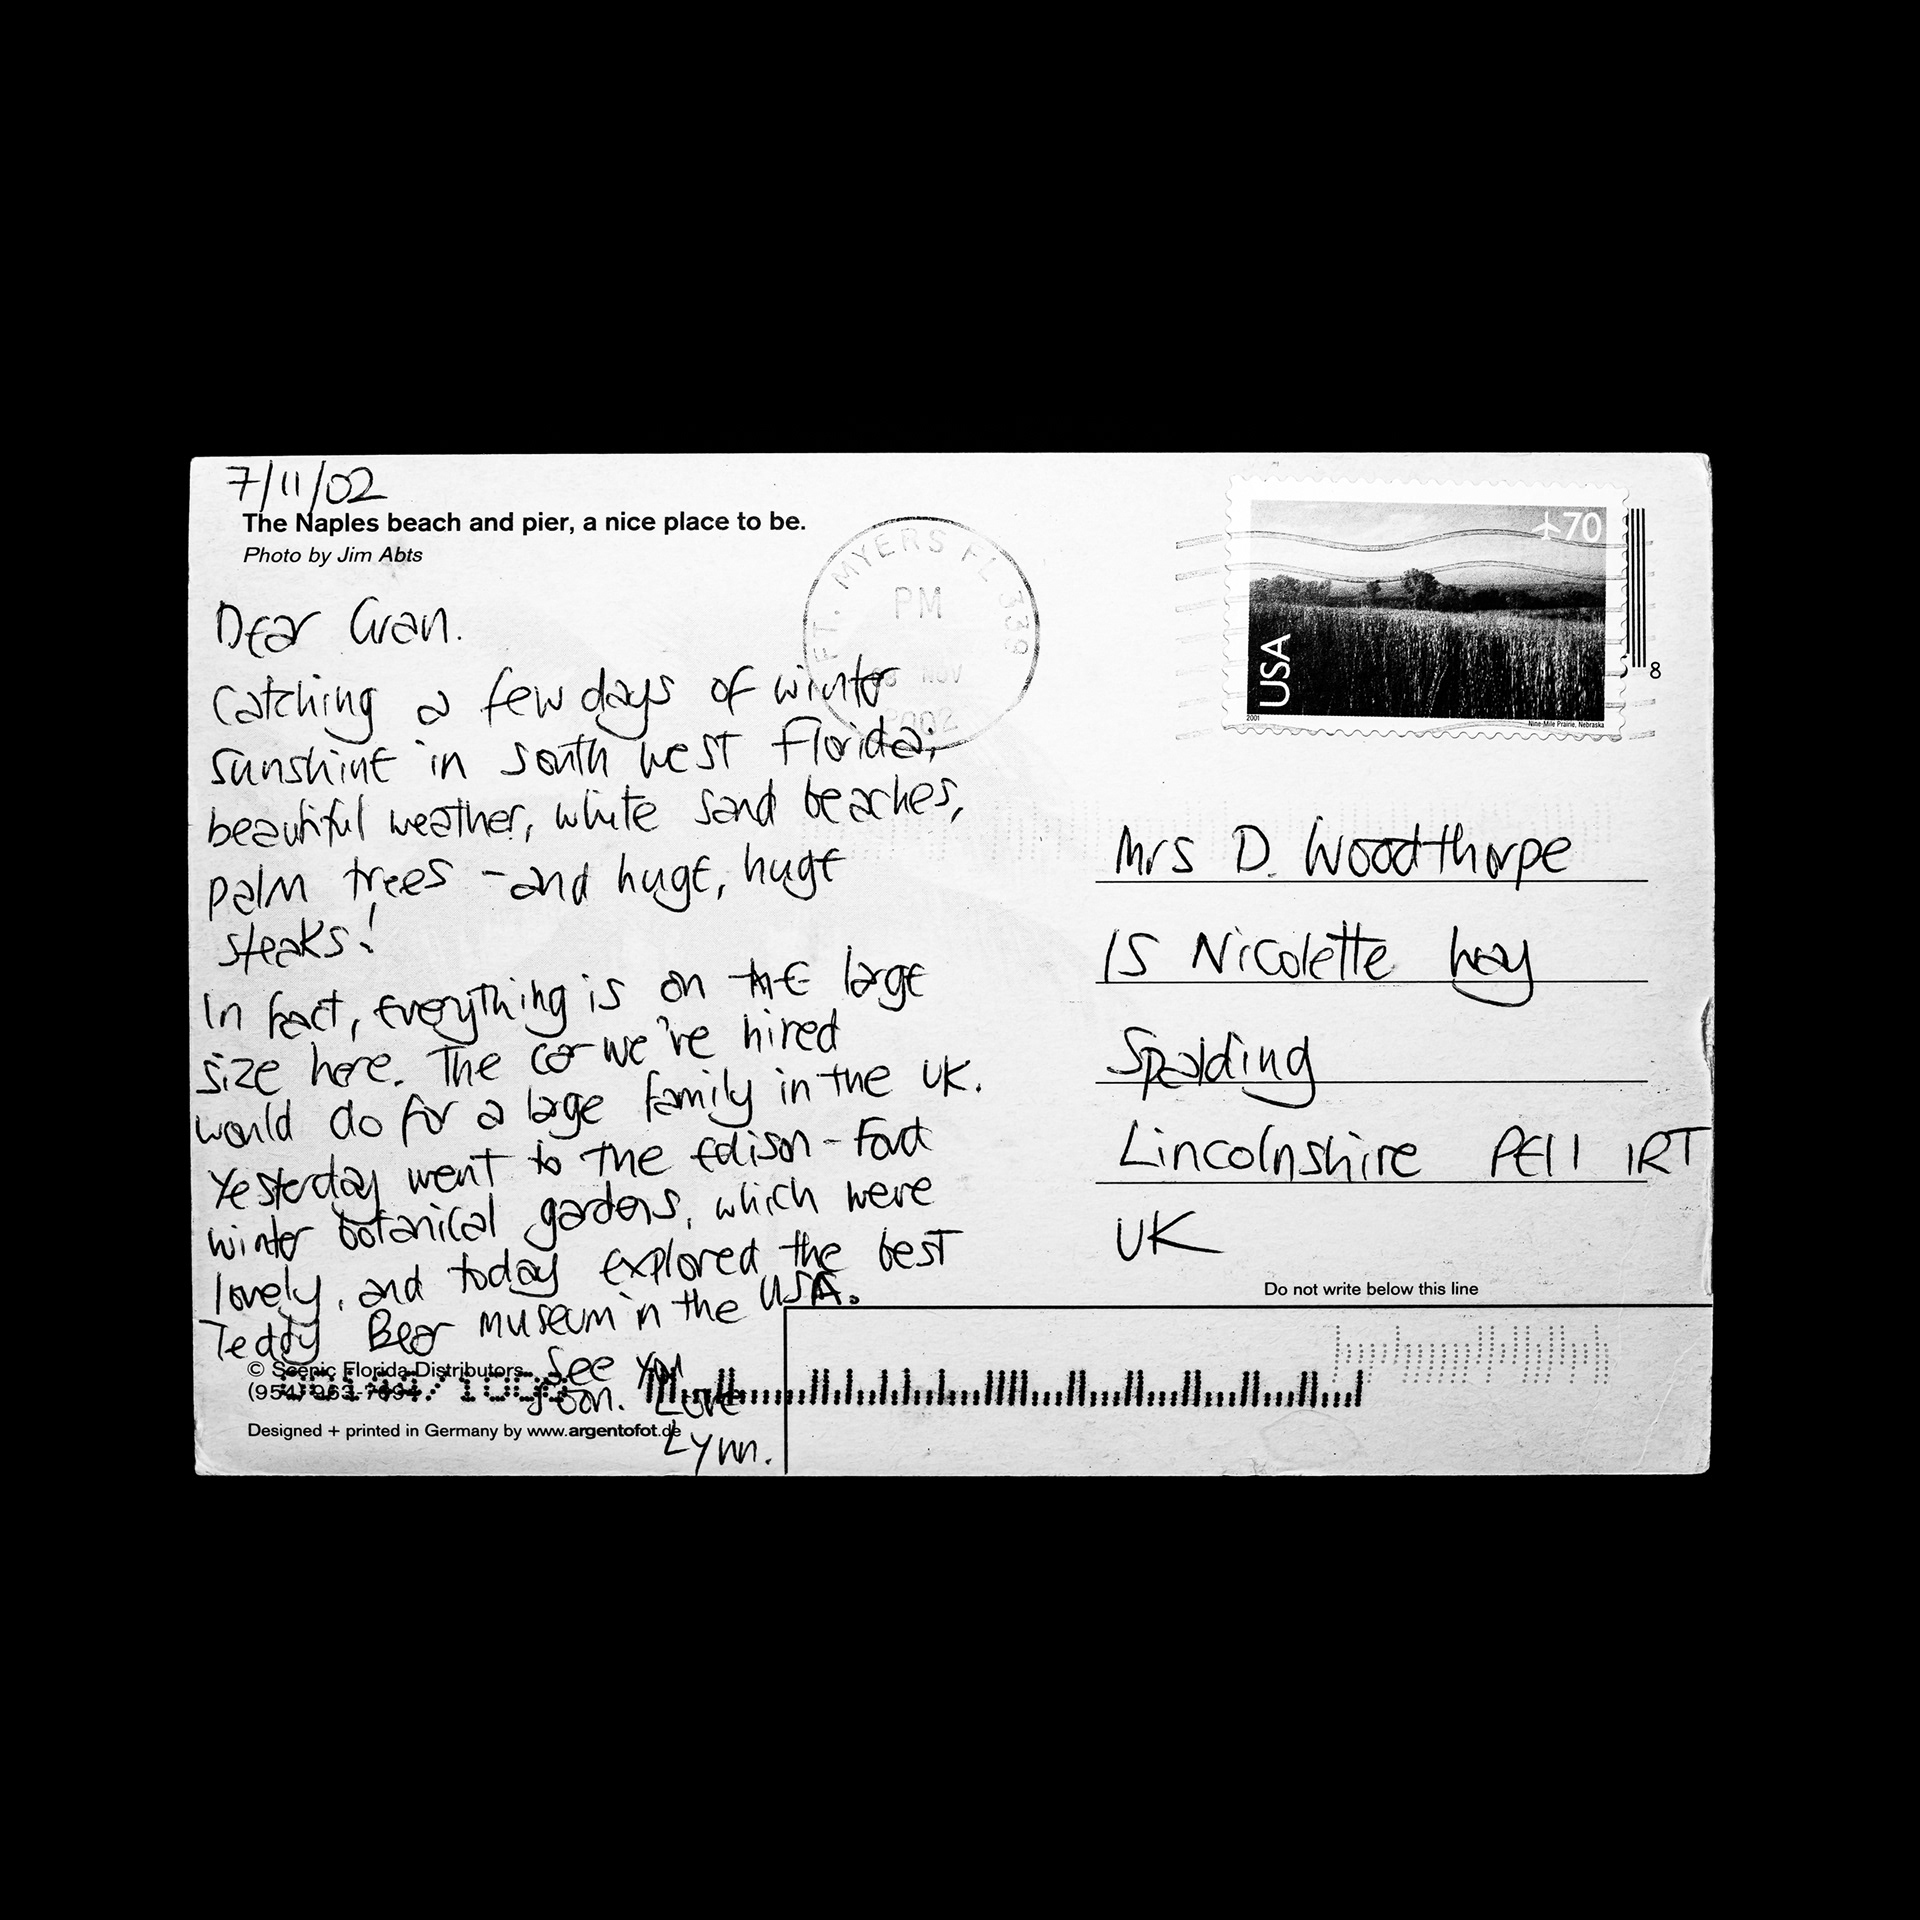 7/11/02
The Naples beach and pier, a nice place to be.
Photo by Jim Abts
Dear Gran.
Catching a few days of winter
sunshine in south west Florida;
beautiful weather, white sand beaches,
palm trees - and huge, huge
steaks!
In fact, everything is on the large
size here. The car we've hired
would do for a large family in the UK.
Yesterday went to the Edison-Ford
winter botanical gardens, which were
lovely, and today explored the best
Teddy Bear museum in the USA.
See you
soon. Love
Lynn.
© Scenic Florida Distributors
(954) 963-
Designed + printed in Germany by www.argentofot.de
FT. MYERS FL 339
PM
NOV
2002
70
USA
2001
Nine-Mile Prairie, Nebraska
8
Mrs D. Woodthorpe
15 Nicolette Way
Spalding
Lincolnshire PE11 1RT
UK
Do not write below this line